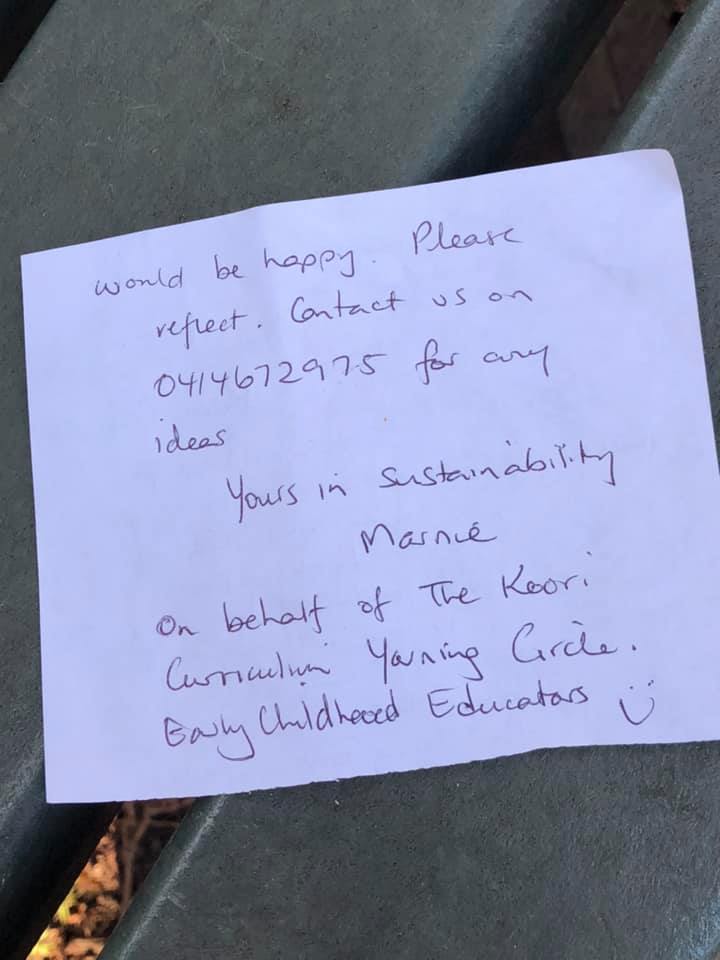 would be happy. Please
reflect. Contact us on
0414672975 for any
ideas
Yours in Sustainability
Marnie
On behalf of The Koori
Curriculum Yarning Circle.
Early Childhood Educators